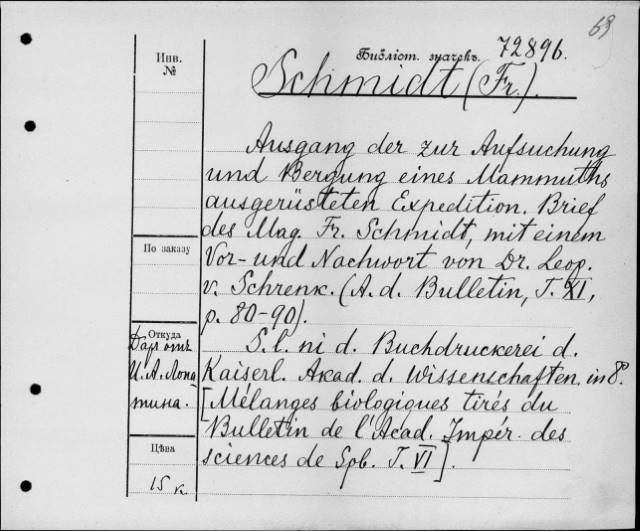 69
Библіот. значекъ. 72896.
Инв.
№
Schmidt (Fr.).
Ausgang der zur Aufsuchung
und Bergung eines Mammuths
ausgerüsteten Expedition. Brief
des Mag. Fr. Schmidt, mit einem
Vor- und Nachwort von Dr. Leop.
v. Schrenk. (A. d. Bulletin, T. XI,
p. 80-90).
S. l. ni d. Buchdruckerei d.
Kaiserl. Akad. d. Wissenschaften. in 8º.
[Mélanges biologiques tirés du
Bulletin de l'Acad. Impér. des
sciences de Spb. T. VI].
По заказу
Откуда
Даръ отъ
И. А. Лопа
тина.
Цѣна
15 к.